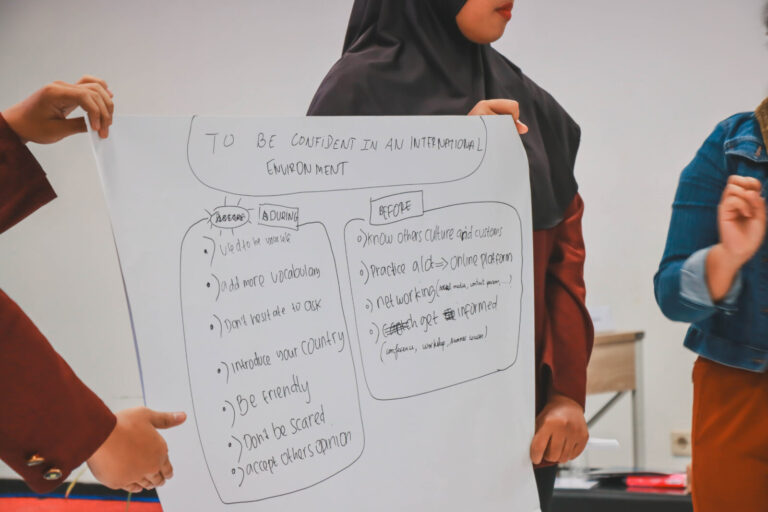 TO BE CONFIDENT IN AN INTERNATIONAL
ENVIRONMENT
DURING
Used to be
add more vocabulary
Don't hesitate to ask
introduce your country
Be friendly
Don't be scared
accept others opinion
BEFORE
know others culture and customs
Practice a lot => online platform
networking (social media, contact person, ...)
get informed
(conference, workshop, summer